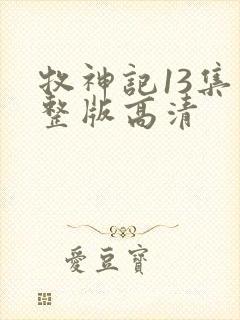 牧神記13集
整版高清
愛豆寶